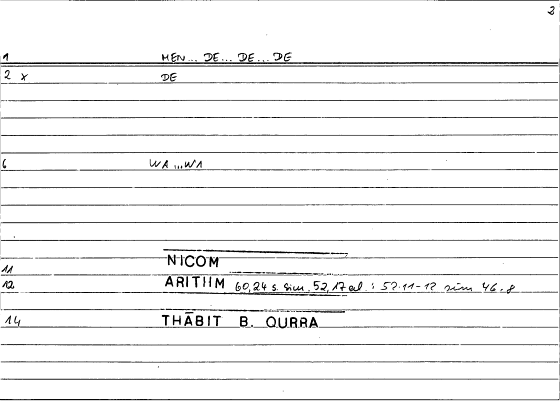 2
1 MEN... DE... DE... DE
2 x DE
6 WA...WA
11 NICOM
12 ARITIIM 60,24 s. sim. 52,17 al. : 52.11-12 sim 46.8
14 THĀBIT B. QURRA